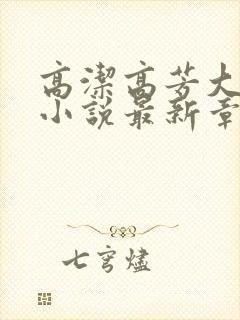 高潔高芳大
小說最新章
七穹燼